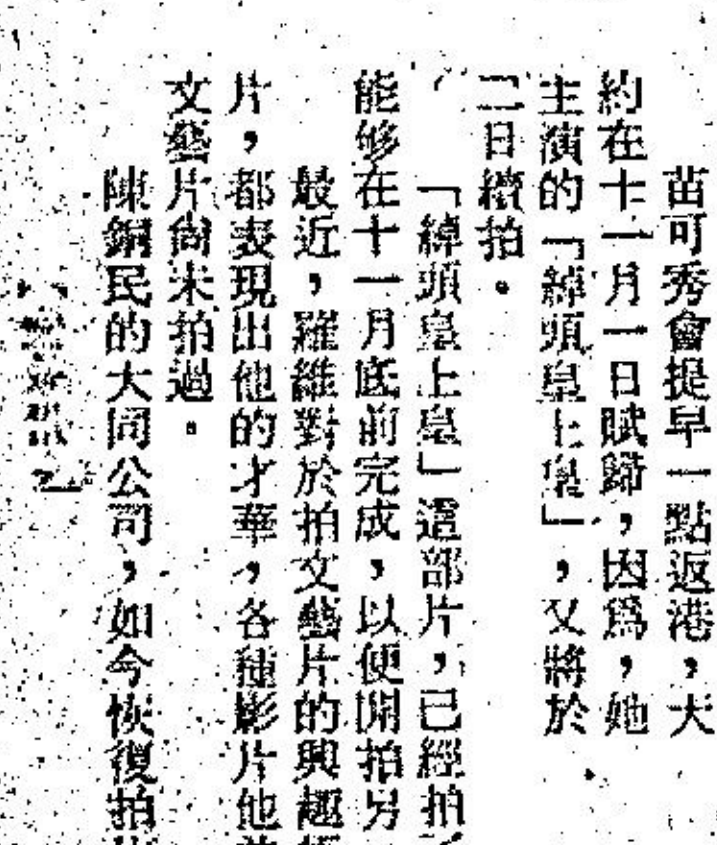 苗可秀會提早一點返港，大
約在十一月一日賦歸，因爲，她
主演的「綽頭皇上皇」，又將於
二日續拍。
「綽頭皇上皇」這部片，已經拍
能够在十一月底前完成，以便開拍另
最近，羅維對於拍文藝片的興趣
片，都表現出他的才華，各種影片他
文藝片尚未拍過。
陳銅民的大同公司，如今恢復拍